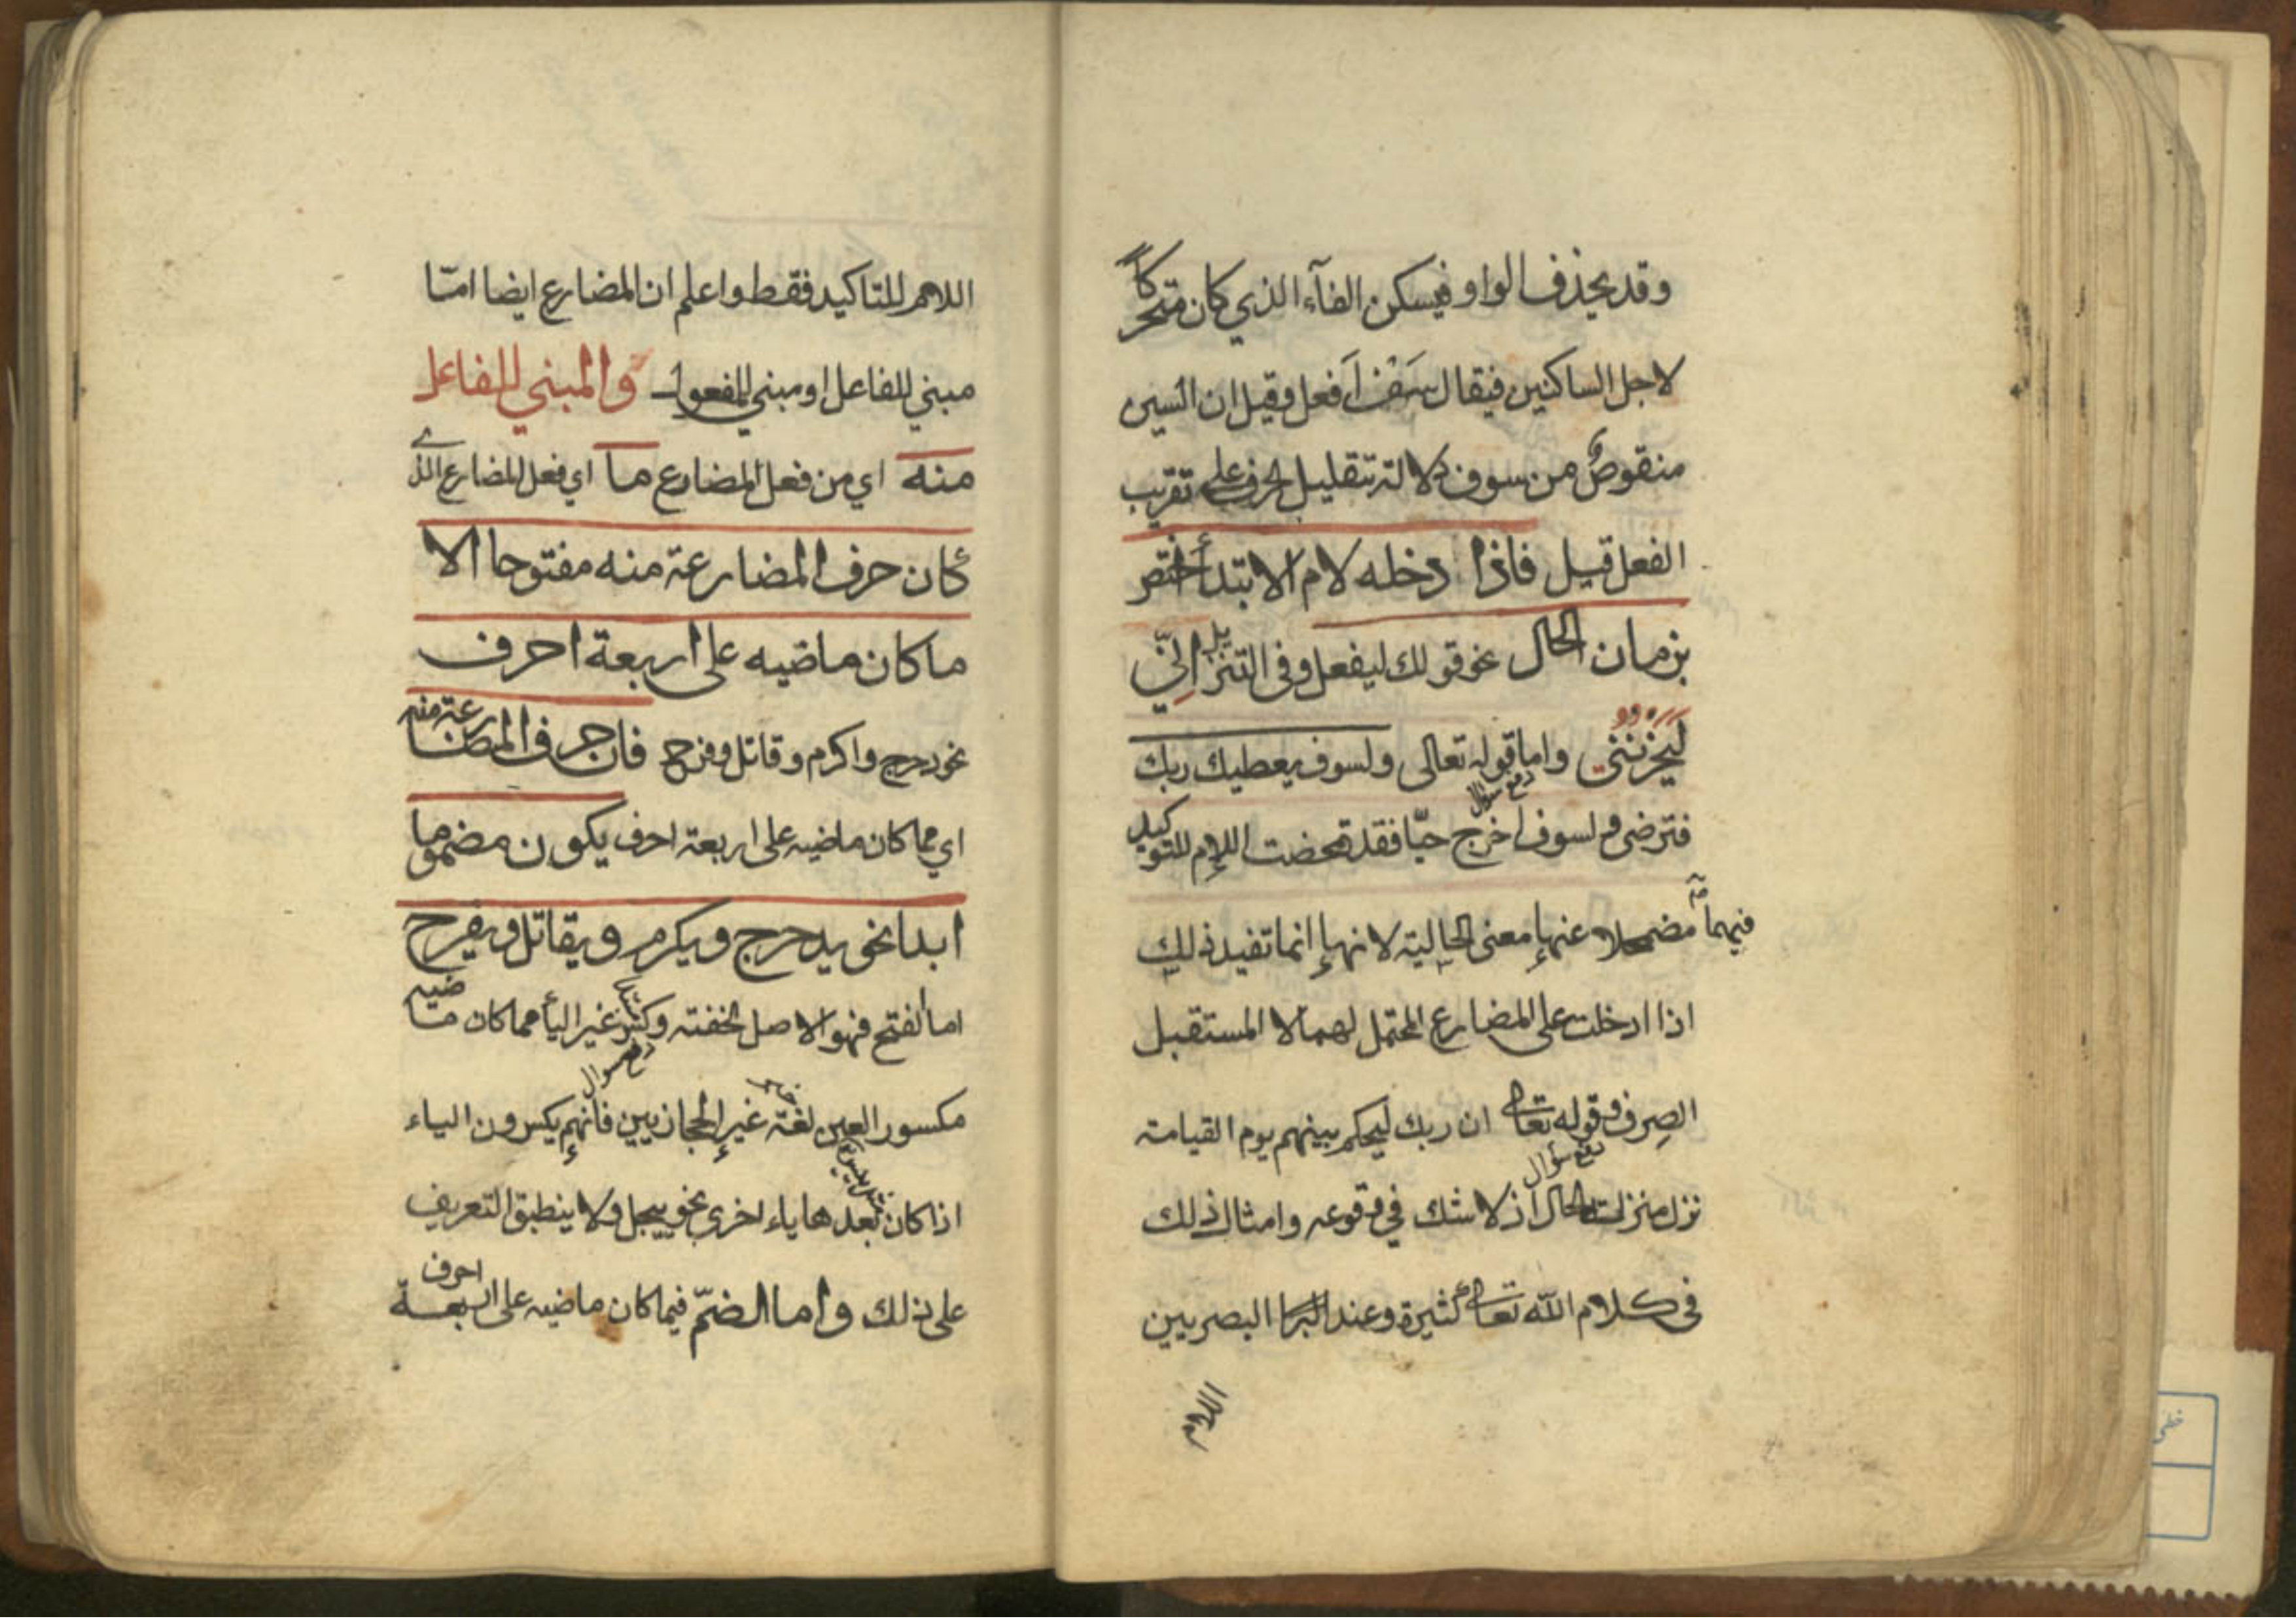 وقد يحذف الواو فيسكن الفآء الذي كان متحركاً
لاجل الساكنين فيقال سَفْ اَفعل وقيل ان السين
منقوصٌ من سوف دلالة بتقليل الحرف على تقريب
الفعل قيل فاذا دخله لام الابتدأ اختص
بزمان الحال نحو قولك ليفعل وفى التنزيل اِنّي
لَيَحْزُنُنِي واما قوله تعالى ولسوف يعطيك ربك
دفع سؤال
فترضى ولسوف اخرج حيّا فقد تمحضت اللام للتوكيد
فيهما مضمحلا عنها معنى الحالية لانها انما تفيد ذلك
اذا ادخلت على المضارع المحتمل لهما لا المستقبل
الصرف وقوله تعالى ان ربك ليحكم بينهم يوم القيامة
دفع سؤال
نزل منزلة الحال اذ لا شك في وقوعه وامثال ذلك
فى كلام الله تعالى كثيرة وعند البصريين
اللام
اللام للتاكيد فقط واعلم ان المضارع ايضا امّا
مبني للفاعل او مبني للمفعول والمبني للفاعل
منه اي من فعل المضارع ما اي فعل المضارع الذي
كان حرف المضارعة منه مفتوحا الا
ما كان ماضيه على اربعة احرف
نحو دحرج واكرم وقاتل وفرح فان حرف المضارعة منه
اي مما كان ماضيه على اربعة احرف يكون مضموما
ابدا نحو يدحرج ويكرم ويقاتل ويفرح
اما الفتح فهو الاصل لخفته وكسر غير اليأ مما كان ماضيه
دفع سوال
مكسور العين لغة غير الحجازيين فانهم يكسرون الياء
اذا كان بعدها ياء اخرى نحو ييجل ولا ينطبق التعريف
على ذلك واما الضمّ فيما كان ماضيه على اربعة احرف